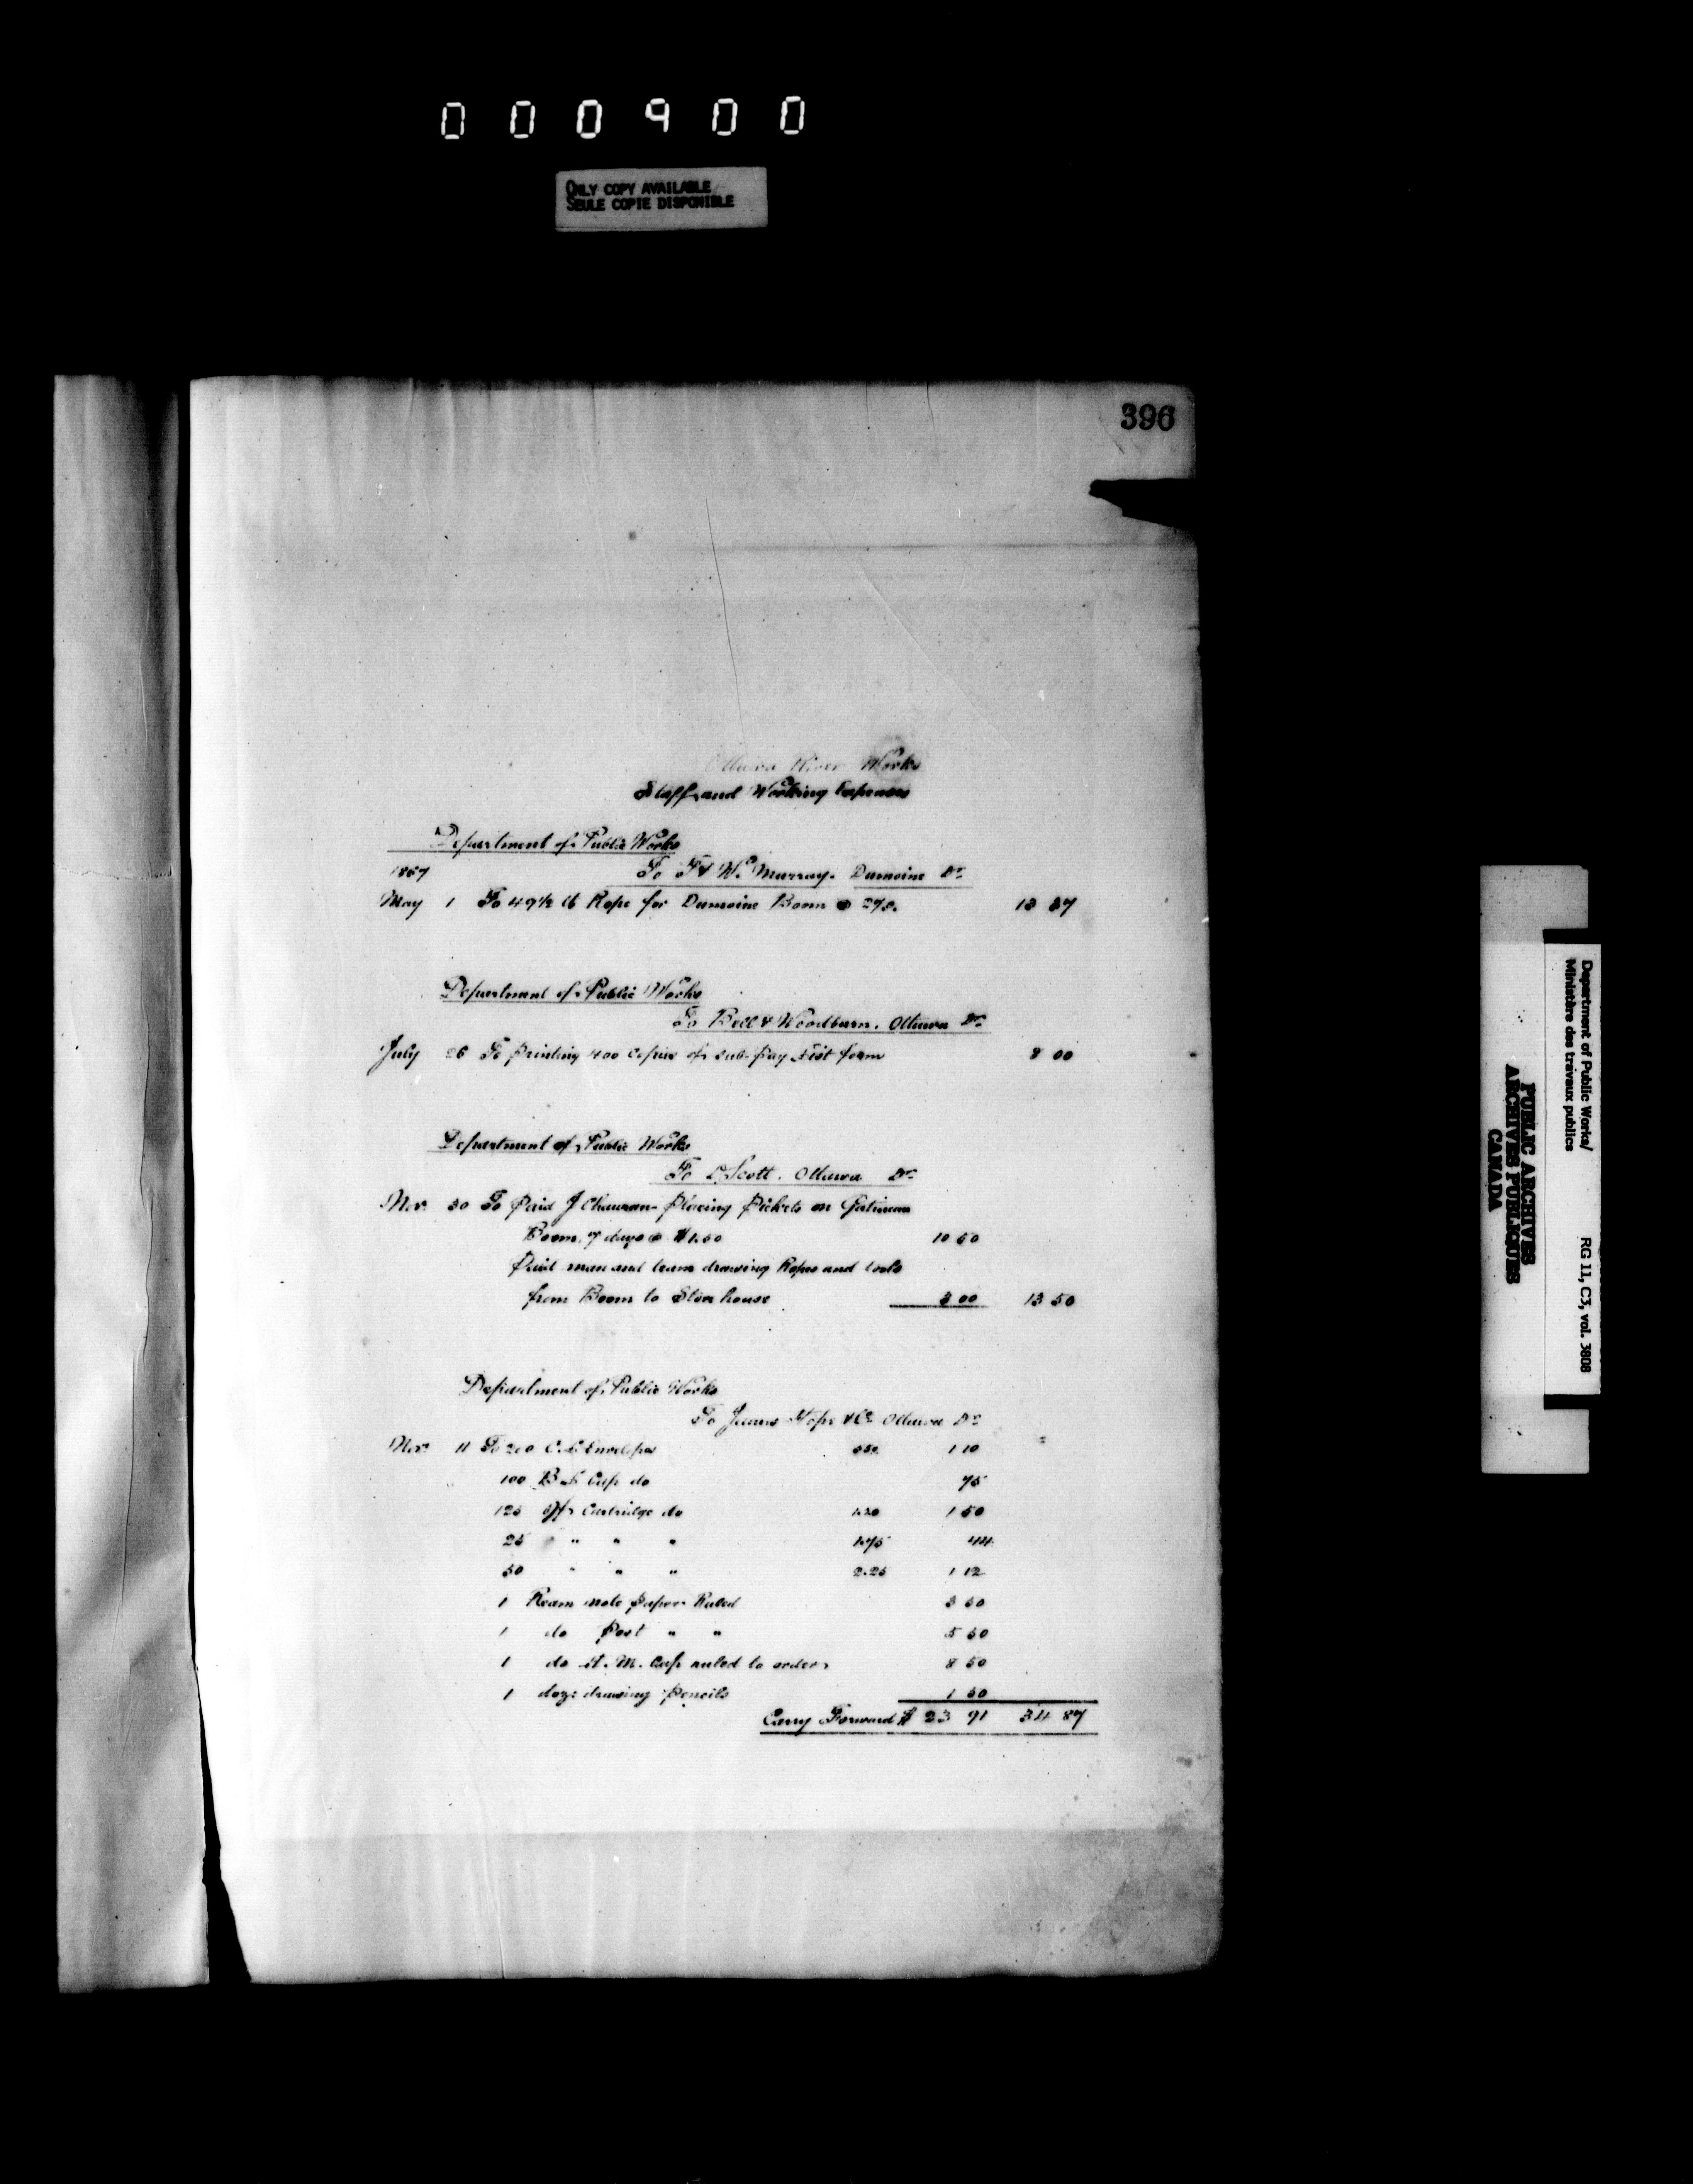 000900
ONLY COPY AVAILABLE
SEULE COPIE DISPONIBLE
396
Ottawa River Works
Staff and Working Expenses
Department of Public Works
1867 To T & W. Murray. Dumoine Dr
May 1 To 49½ lb Rope for Dumoine Boom @ 27c. 13 37
Department of Public Works
To Bell & Woodburn. Ottawa Dr
July 26 To Printing 400 Copies of Sub-Pay List form 8 00
Department of Public Works
To Scott. Ottawa Dr
Nov. 30 To Paid J Placing Pickets on Gatineau
Boom. 7 days @ $1.50 10 50
Paid man and team drawing Ropes and tools
from Boom to Store house 3 00 13 50
Department of Public Works
To James Hope & Co Ottawa Dr
Nov. 11 To 200 Envelopes 55c. 1 10
100 Cap do 75
125 Cartridge do 1.20 1 50
25 " " " 1.75 44
50 " " " 2.25 1 12
1 Ream note paper Ruled 3 50
1 do Post " " 5 50
1 do H. M. Cap ruled to order 8 50
1 doz: drawing Pencils 1 50
Carry Forward $ 23 91 34 87
Department of Public Works/
Ministère des travaux publics
RG 11, C3, vol. 3808
PUBLIC ARCHIVES
ARCHIVES PUBLIQUES
CANADA